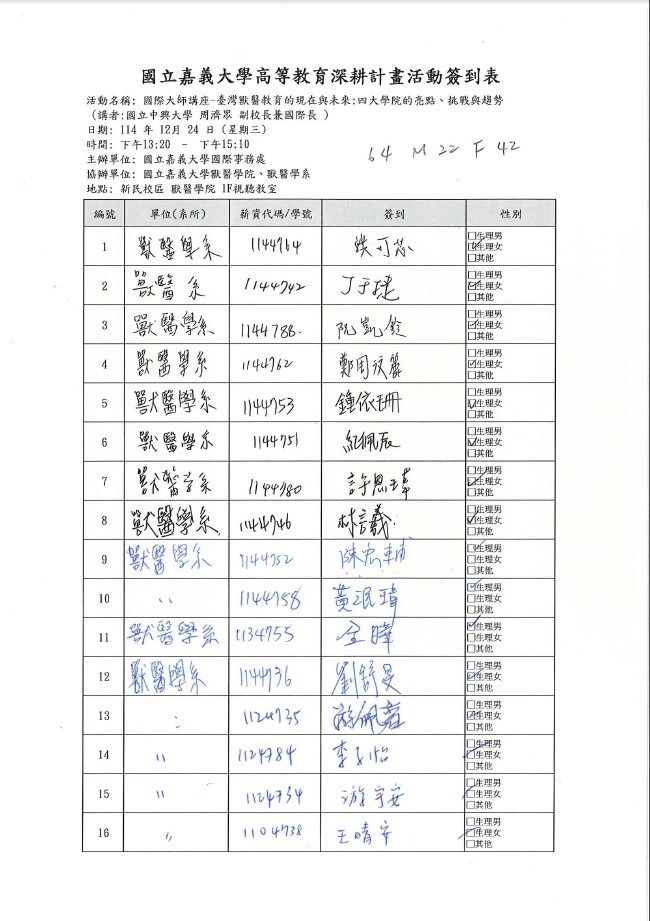 國立嘉義大學高等教育深耕計畫活動簽到表
活動名稱: 國際大師講座-臺灣獸醫教育的現在與未來:四大學院的亮點、挑戰與趨勢
(講者:國立中興大學 周濟眾 副校長兼國際長 )
日期: 114 年 12月 24 日 (星期三)
時間: 下午13:20 - 下午15:10
64 M 22 F 42
主辦單位: 國立嘉義大學國際事務處
協辦單位: 國立嘉義大學獸醫學院、獸醫學系
地點: 新民校區 獸醫學院 1F視聽教室
編號 單位(系所) 薪資代碼/學號 簽到 性別
1 獸醫學系 1144764 可芯 □生理男 □生理女 □其他
2 獸醫系 1144742 丁于捷 □生理男 □生理女 □其他
3 獸醫學系 1144788. 阮凱鈴 □生理男 □生理女 □其他
4 獸醫學系 1144762 鄭周 □生理男 □生理女 □其他
5 獸醫學系 1144753 鍾依珊 □生理男 □生理女 □其他
6 獸醫學系 1144751 紀佩辰 □生理男 □生理女 □其他
7 獸醫學系 1144780 許恩瑋 □生理男 □生理女 □其他
8 獸醫學系 1144746 林言議 □生理男 □生理女 □其他
9 獸醫學系 1144752 陳宏輔 □生理男 □生理女 □其他
10 〃 1144758 黃珉靖 □生理男 □生理女 □其他
11 獸醫學系 1134755 金暐 □生理男 □生理女 □其他
12 獸醫學系 1144736 劉舒旻 □生理男 □生理女 □其他
13 〃 1124735 游佩嘉 □生理男 □生理女 □其他
14 〃 1124784 李怡 □生理男 □生理女 □其他
15 〃 1124734 游宇安 □生理男 □生理女 □其他
16 〃 1104738 王晴安 □生理男 □生理女 □其他